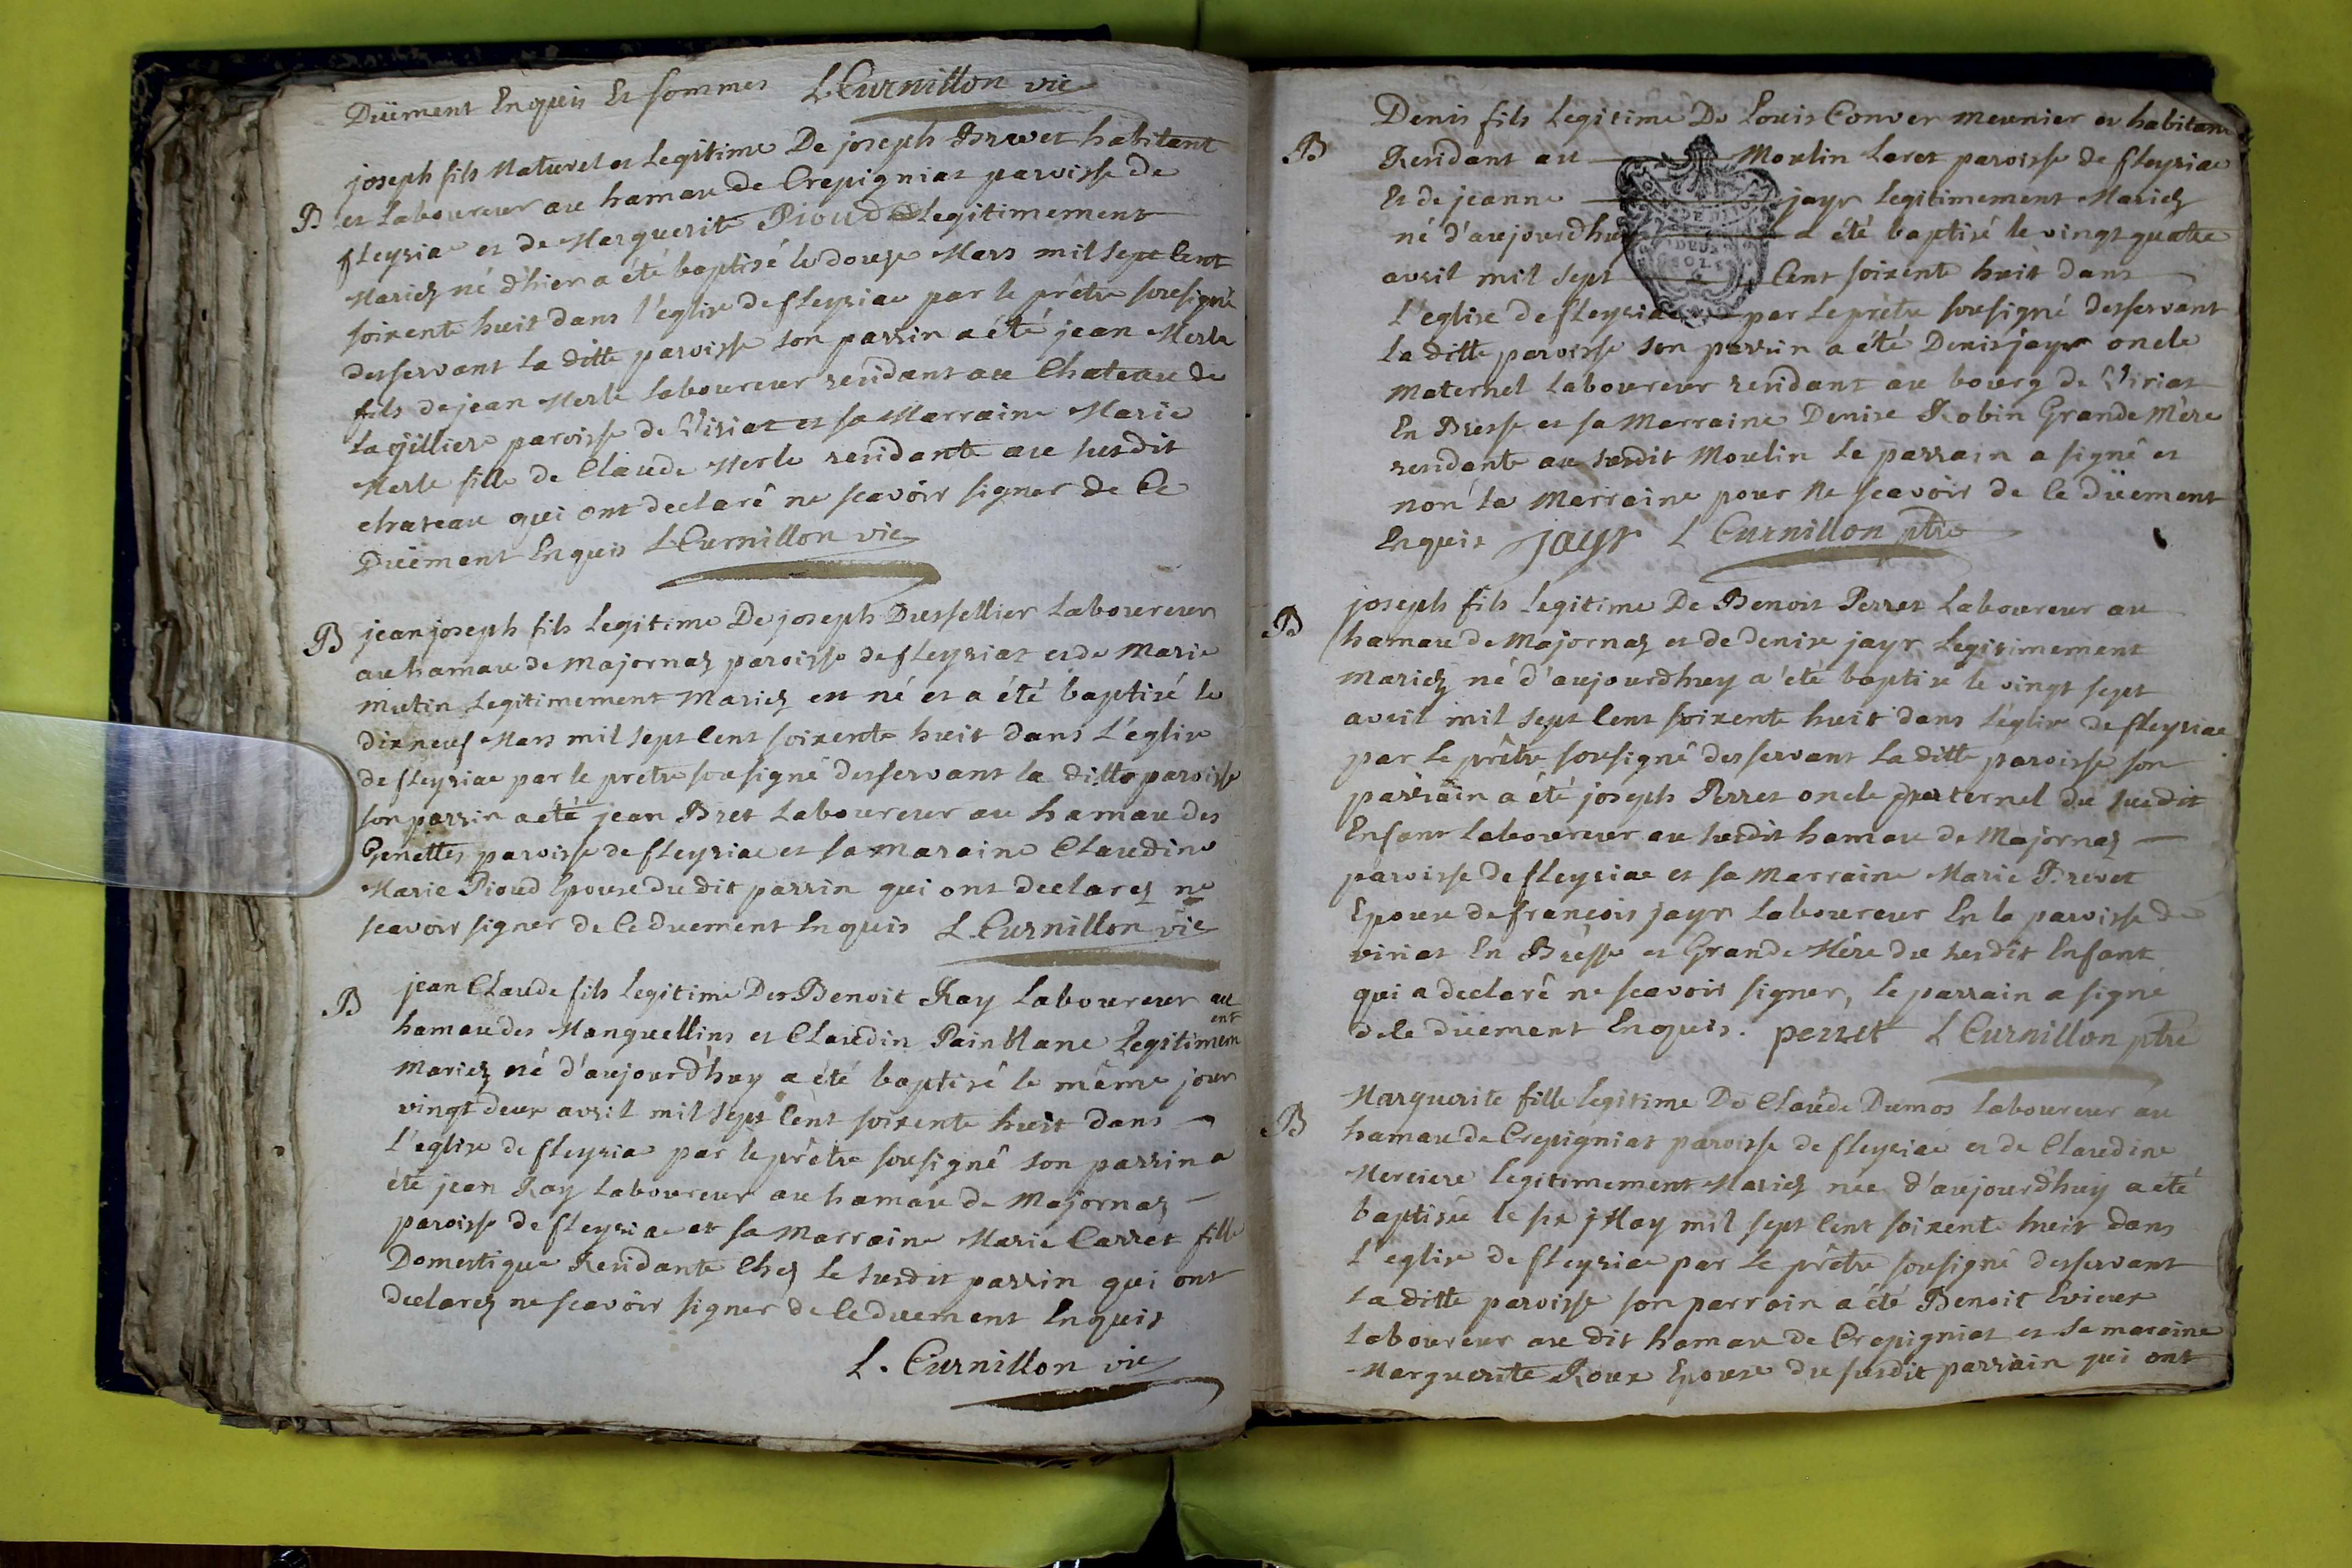 Duëment Enquis Et sommes L Curnillon vic
joseph fils Naturel et Legitime De joseph Brevet habitant
B et Laboureur au hamau de Crepigniat paroisse de
fleyria et de Marguerite Pioud Legitimement
Mariez né d'hier a été baptisé le douze Mars mil sept Cent
soixente huit dans l'église de fleyriac par le prêtre sousigné
desservant la ditte paroisse son parrin a été jean Merle
fils de jean Merle Laboureur residant au Chateau de
la gillière paroisse de Viriat et sa Marraine Marie
Merle fille de Claude Merle residante au susdit
chateau qui ont declaré ne scavoir signer de Ce
Duëment Enquis L Curnillon vic
B jean joseph fils Legitime De joseph Dusfellier Laboureur
au hamau de Majornaz paroisse de fleyriat et de Marie
mutin Legitimement Mariez est né et a été baptisé le
dix neuf Mars mil sept Cent soixente huit dans L'églize
de fleyriac par le pretre sousigné desservant la ditte paroisse
son parrin a été jean Bret Laboureur au hamau des
Genettes paroisse de fleyriac et sa maraine Claudine
Marie Pioud Epouse du dit parrin qui ont declarez ne
scavoir signer de Ce duement Enquis L. Curnillon vic
jean Claude fils Legitime Des Benoit Ray Laboureur au
B hamau des Manguellins et Claudin Painblanc Legitimem ent
mariez né d'aujourd'huy a été baptisé le même jour
vingt deux avril mil sept Cent soixente huit dans
L'eglise de fleyria par le prêtre sousigné son parrin a
été jean Ray Laboureur au hamau de Majornaz
paroisse de fleyriac et sa Marraine Marie Carret fille
Domestique Residante Chez le susdit parrin qui ont
declarez ne scavoir signer de Ce duement Enquis
L. Curnillon vic
Denis fils Legitime De Louis Conver meunier et habitant
B Residant au Moulin Laret paroisse de fleyriac
Et de jeanne jayr legitimement Mariez
né d'aujourdhuy a été baptisé le vingt quatre
avril mil sept Cent soixente huit dans
L'eglise de fleyriac par le prêtre sousigné desservant
La ditte paroisse son parrin a été Denis jayr oncle
maternel Laboureur residant au bourg de Viriat
En Bresse et sa Marraine Denise Robin Grande Mère
residante au susdit Moulin Le parrain a signé et
non la Marraine pour Ne scavoir de Ce duëment
Enquis jayr L Curnillon ptre
joseph fils Legitime De Benoit Perret Laboureur au
B hamau de Majornaz et de denise jayr Legitimement
mariez né d'aujourdhuy a été baptisé le vingt sept
avril mil sept Cent soixente huit dans L'églize de fleyriac
par Le prêtre sousigné desservant La ditte paroisse son
parrain a été joseph Perret oncle paternel du susdit
Enfant Laboureur au susdit hamau de Majornaz
paroisse de fleyriac et sa Marraine Marie Brevet
Epouse de françois jayr Laboureur En la paroisse de
viriat En Bresse et Grande Mère du susdit Enfant
qui a declaré ne scavoir signer, le parrain a signé
de Ce duëment Enquis. perret L Curnillon ptre
Marguerite fille legitime De Claude Dumos Laboureur au
B hamau de Crepigniat paroisse de fleyriac et de Claudine
Merciere Legitimement Mariez née d'aujourdhuy a été
baptisée le six May mil sept Cent soixente huit dans
L'eglise de fleyriac par Le prêtre sousigné desservant
La ditte paroisse son parrain a été Benoit Evieux
Laboureur au dit hamau de Crepigniat et sa maraine
Marguerite Roux Epouse du susdit parrain qui ont